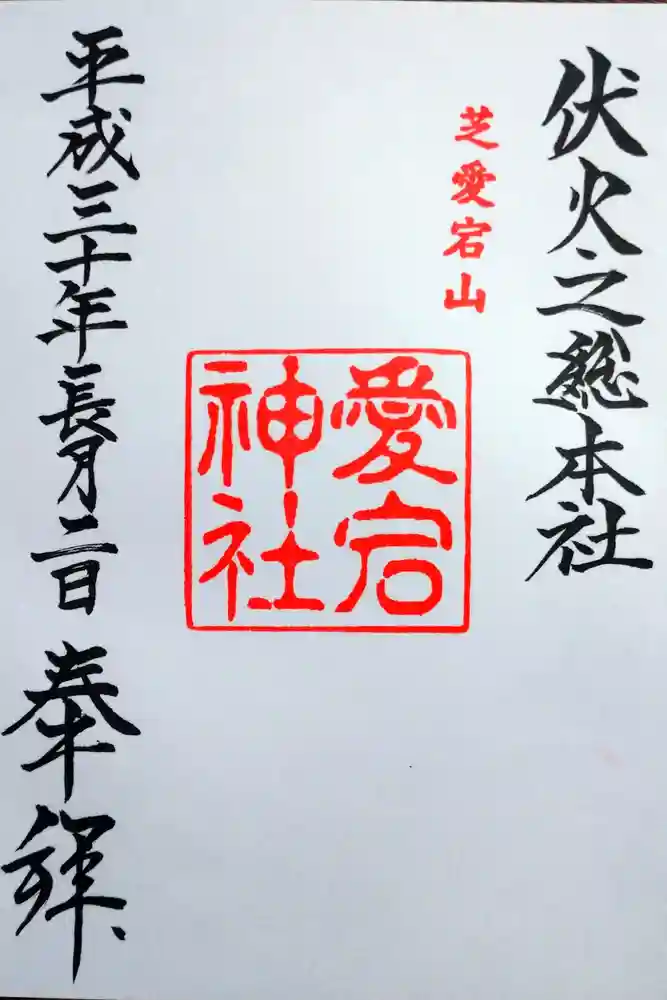 伏火之総本社
芝愛宕山
愛宕
神社
平成三十年長月二日 奉拝